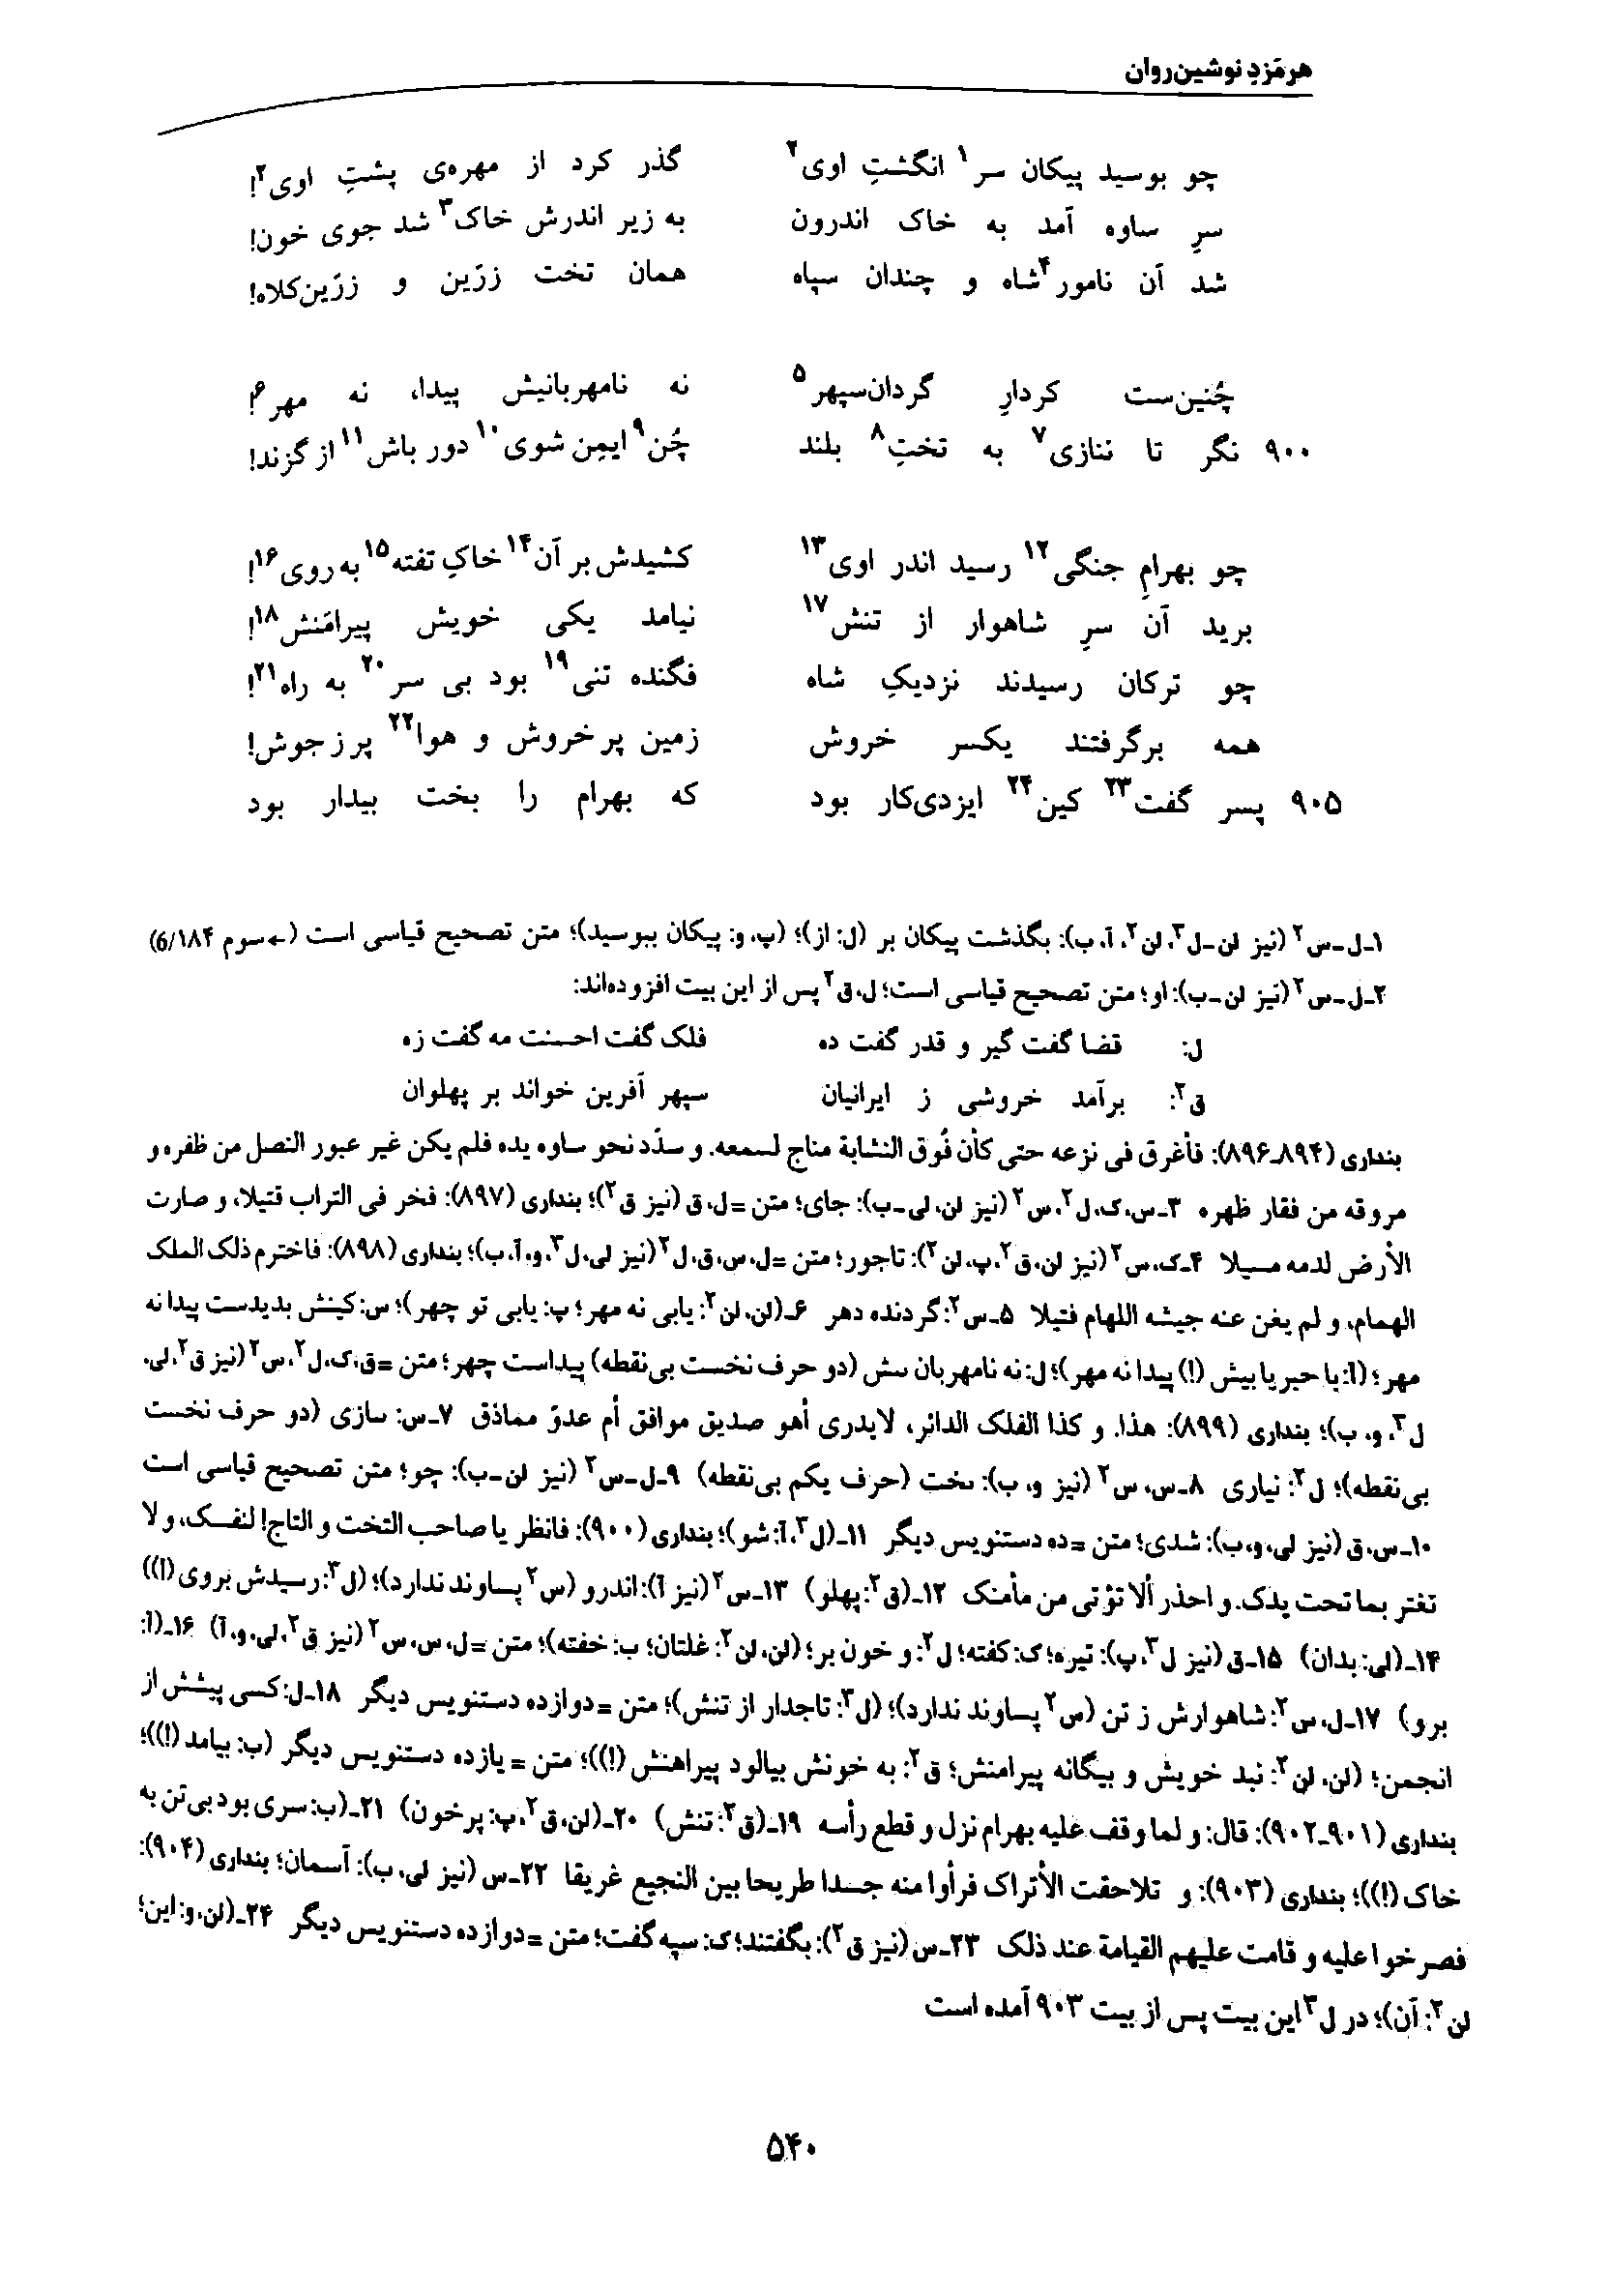 هرمَزدِ نوشین‌روان
چو بوسید پیکان سر۱ انگشتِ اوی۲ گذر کرد از مهره‌ی پشتِ اوی۲!
سرِ ساوه آمد به خاک اندرون به زیر اندرش خاک۳ شد جوی خون!
شد آن نامور۴ شاه و چندان سپاه همان تخت زرّین و زرّین‌کلاه!
چُنین‌ست کردارِ گردان‌سپهر۵ نه نامهربانیش پیدا، نه مهر۶!
۹۰۰ نگر تا ننازی۷ به تختِ۸ بلند چُن۹ ایمِن شوی۱۰ دور باش۱۱ از گزند!
چو بهرامِ جنگی۱۲ رسید اندر اوی۱۳ کشیدش بر آن۱۴ خاکِ تفته۱۵ به روی۱۶!
برید آن سرِ شاهوار از تنش۱۷ نیامد یکی خویش پیرامَنش۱۸!
چو ترکان رسیدند نزدیکِ شاه فگنده تنی۱۹ بود بی سر۲۰ به راه۲۱!
همه برگرفتند یکسر خروش زمین پر خروش و هوا۲۲ پر ز جوش!
۹۰۵ پسر گفت۲۳ کین۲۴ ایزدی‌کار بود که بهرام را بخت بیدار بود
۱ـ ل ـ س۲ (نیز لن ـ ل۳، لن۲، آ، ب): بگذشت پیکان بر (ل: از)؛ (پ، و: پیکان ببوسید)؛ متن تصحیح قیاسی است (← سوم ۱۸۴/6)
۲ـ ل ـ س۲ (نیز لن ـ ب): او؛ متن تصحیح قیاسی است؛ ل، ق۲ پس از این بیت افزوده‌اند:
ل: قضا گفت گیر و قدر گفت ده فلک گفت احسنت مه گفت زه
ق۲: برآمد خروشی ز ایرانیان سپهر آفرین خواند بر پهلوان
بنداری (۸۹۴ـ۸۹۶): فأغرق فی نزعه حتی کأن فُوق النشابة مناج لسمعه. و سدّد نحو ساوه یده فلم یکن غیر عبور النصل من ظفره و
مروقه من فقار ظهره ۳ـ س، ک، ل۲، س۲ (نیز لن، لی ـ ب): جای؛ متن = ل، ق (نیز ق۲)؛ بنداری (۸۹۷): فخر فی التراب قتیلا، و صارت
الأرض لدمه مسیلا ۴ـ ک، س۲ (نیز لن، ق۲، پ، لن۲): تاجور؛ متن = ل، س، ق، ل۲ (نیز لی، ل۳، و، آ، ب)؛ بنداری (۸۹۸): فاخترم ذلک الملک
الهمام، و لم یغن عنه جیشه اللهام فتیلا ۵ـ س۲: گردنده دهر ۶ـ (لن، لن۲: یابی نه مهر؛ پ: یابی تو چهر)؛ س: کینش بدیدست پیدا نه
مهر؛ (آ: با حبر یا بیش (!) پیدا نه مهر)؛ ل: نه نامهربان سش (دو حرف نخست بی‌نقطه) پیداست چهر؛ متن = ق، ک، ل۲، س۲ (نیز ق۲، لی،
ل۳، و، ب)؛ بنداری (۸۹۹): هذا. و کذا الفلک الدائر، لایدری أهو صدیق موافق أم عدوّ مماذق ۷ـ س: سازی (دو حرف نخست
بی‌نقطه)؛ ل۲: نیاری ۸ـ س، س۲ (نیز و، ب): ىخت (حرف یکم بی‌نقطه) ۹ـ ل ـ س۲ (نیز لن ـ ب): چو؛ متن تصحیح قیاسی است
۱۰ـ س، ق (نیز لی، و، ب): شدی؛ متن = ده دستنویس دیگر ۱۱ـ (ل۳، آ: شو)؛ بنداری (۹۰۰): فانظر یا صاحب التخت و التاج! لنفسک، و لا
تغتر بما تحت یدک. و احذر ألا تؤتی من مأمنک ۱۲ـ (ق۲: پهلو) ۱۳ـ س۲ (نیز آ): اندرو (س۲ پساوند ندارد)؛ (ل۳: رسیدش بروی (!))
۱۴ـ (لی: بدان) ۱۵ـ ق (نیز ل۳، پ): تیره؛ ک: کفته؛ ل۲: و خون بر؛ (لن، لن۲: غلتان؛ ب: خفته)؛ متن = ل، س، س۲ (نیز ق۲، لی، و، آ) ۱۶ـ (آ:
برو) ۱۷ـ ل، س۲: شاهوارش ز تن (س۲ پساوند ندارد)؛ (ل۳: تاجدار از تنش)؛ متن = دوازده دستنویس دیگر ۱۸ـ ل: کسی پیشش از
انجمن؛ (لن، لن۲: نبد خویش و بیگانه پیرامنش؛ ق۲: به خونش بیالود پیراهنش (!))؛ متن = یازده دستنویس دیگر (ب: بیامد (!))؛
بنداری (۹۰۱ـ۹۰۲): قال: و لما وقف علیه بهرام نزل و قطع رأسه ۱۹ـ (ق۲: تنش) ۲۰ـ (لن، ق۲، پ: پرخون) ۲۱ـ (ب: سری بود بی‌تن به
خاک (!))؛ بنداری (۹۰۳): و تلاحقت الأتراک فرأوا منه جسدا طریحا بین النجیع غریقا ۲۲ـ س (نیز لی، ب): آسمان؛ بنداری (۹۰۴):
فصرخوا علیه و قامت علیهم القیامة عند ذلک ۲۳ـ س (نیز ق۲): بگفتند؛ ک: سپه گفت؛ متن = دوازده دستنویس دیگر ۲۴ـ (لن، و: این؛
لن۲: آن)؛ در ل۳ این بیت پس از بیت ۹۰۳ آمده است
۵۴۰